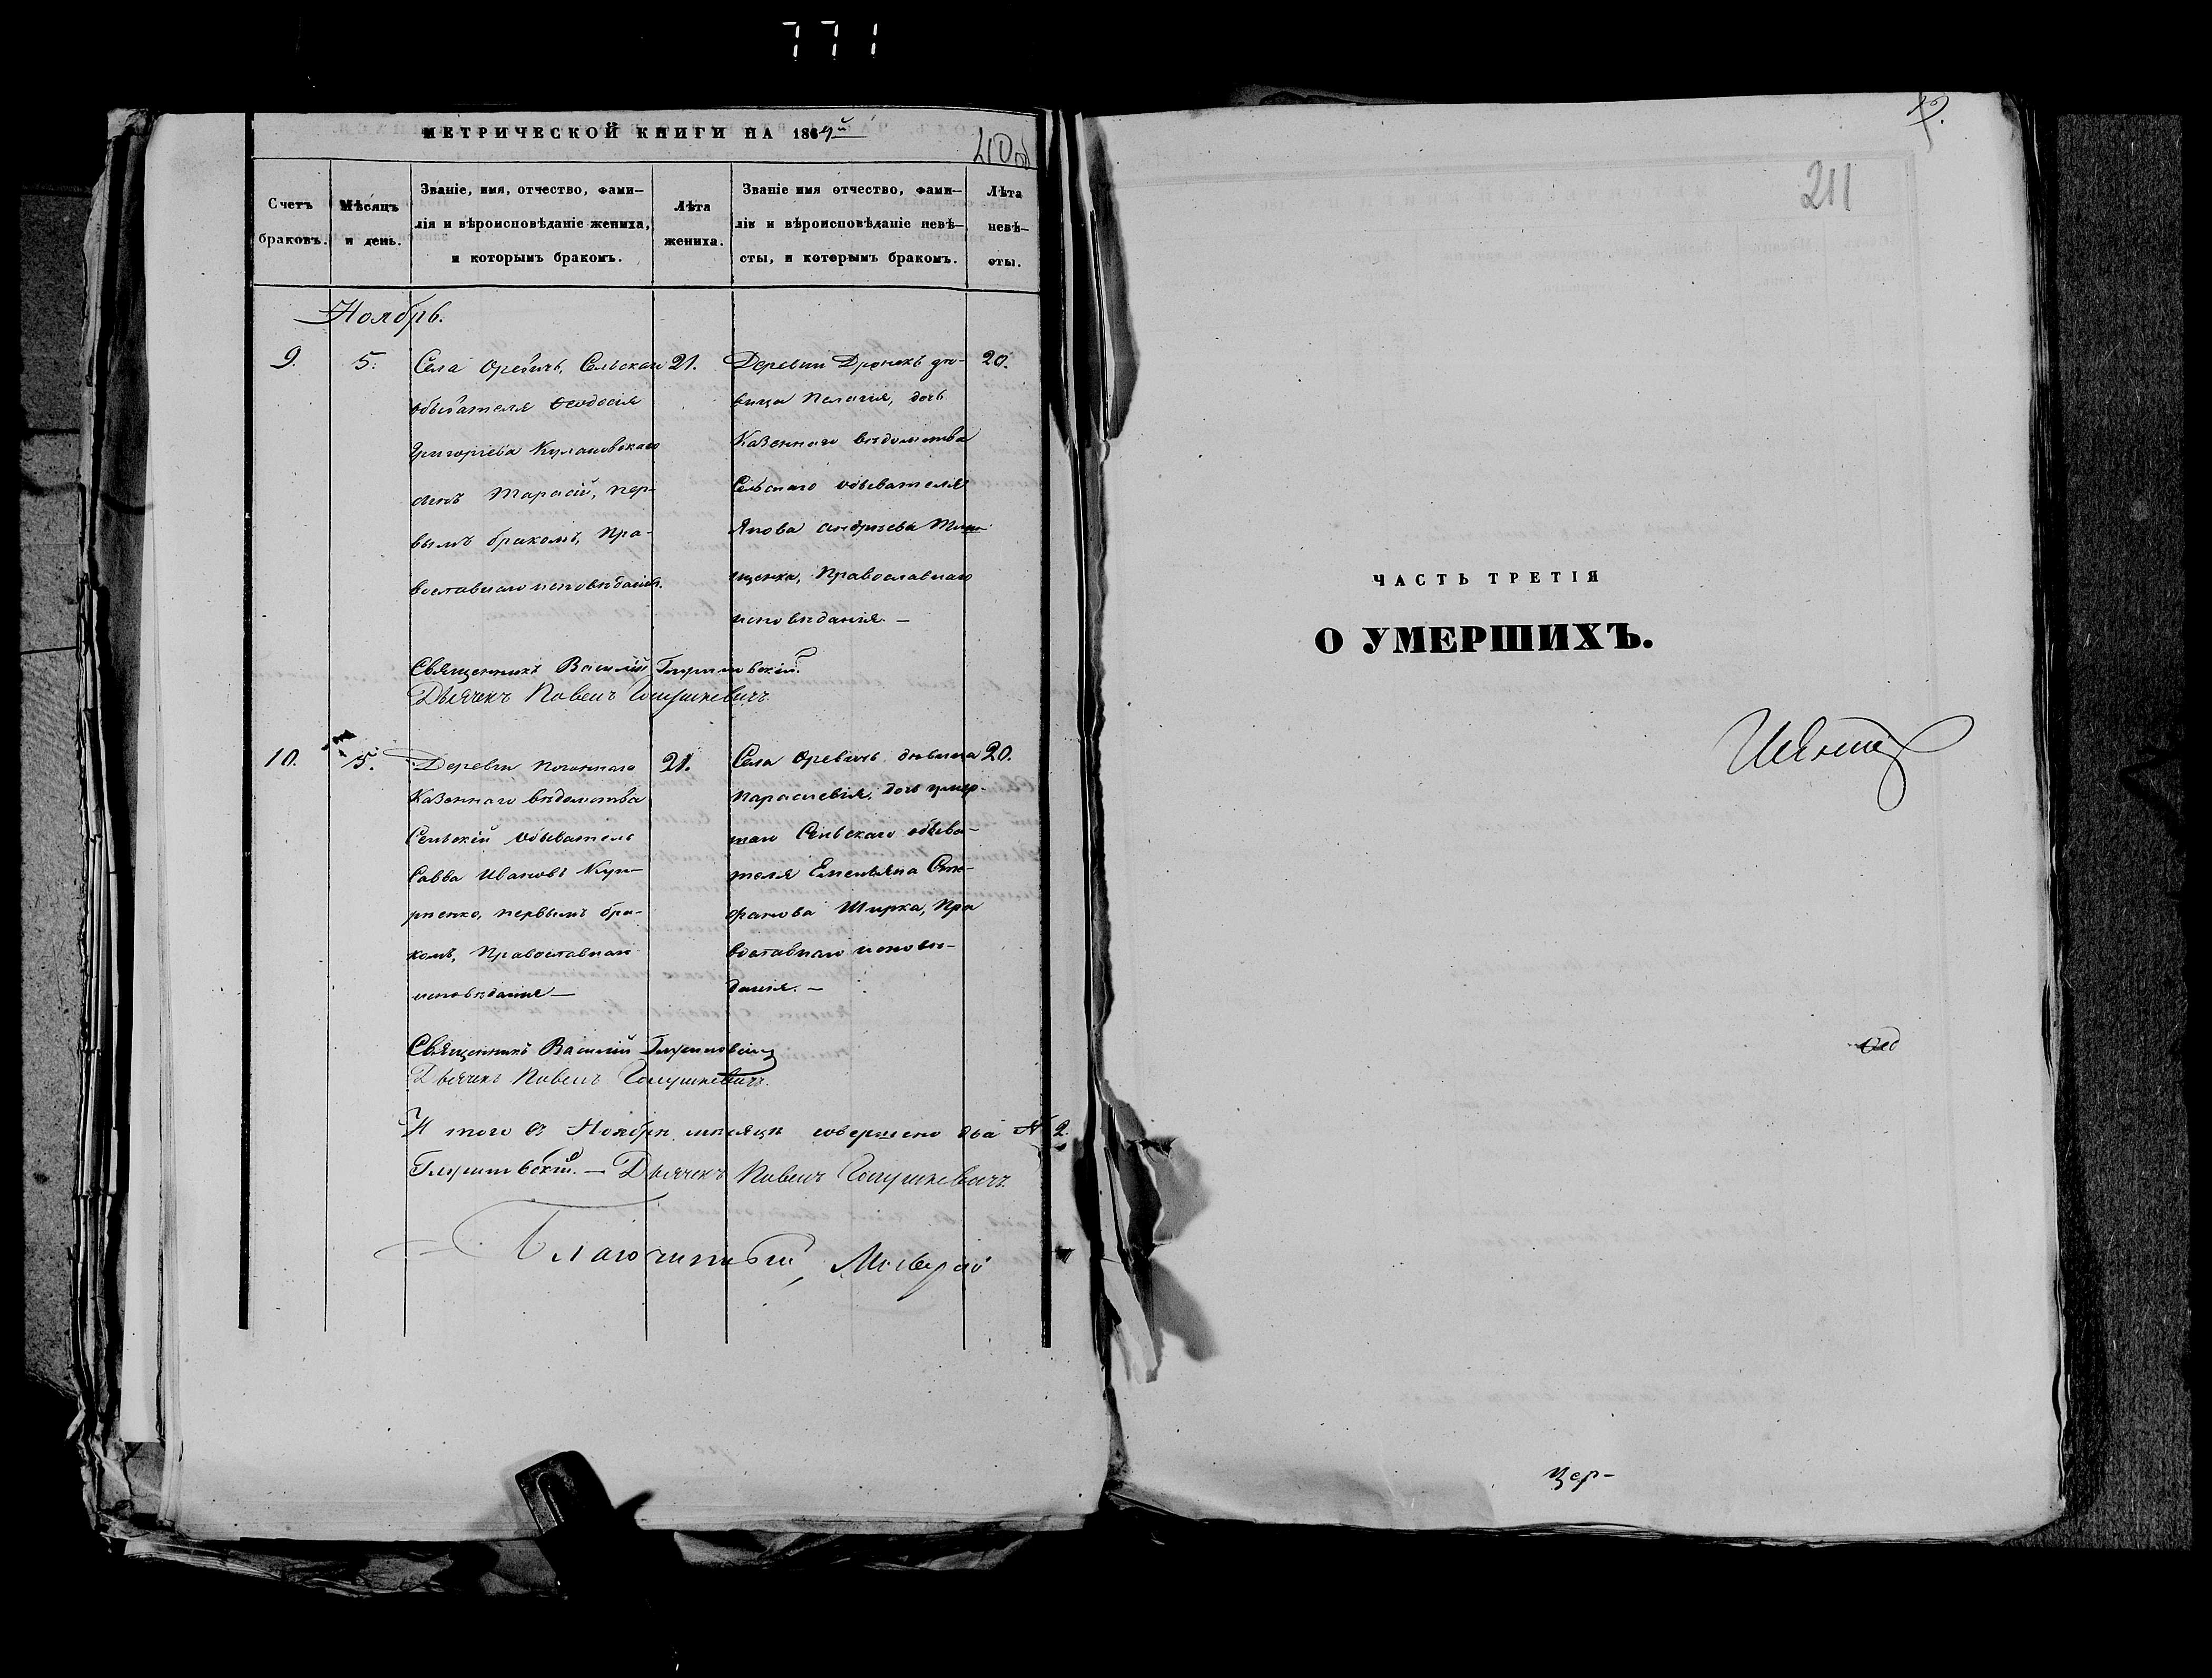 771
МЕТРИЧЕСКОЙ КНИГИ НА 1864й
210об
Счетъ
браковъ.
Мѣсяцъ
и день.
Званіе, имя, отчество, фами-
лія и вѣроисповѣданіе жениха,
и которымъ бракомъ.
Лѣта
жениха.
Званіе имя отчество, фами-
лія и вѣроисповѣданіе невѣ-
сты, и которымъ бракомъ.
Лѣта
невѣ-
сты.
Ноябрь.
9.
5.
Села Оревичъ, Сельскаго
обывателя Ѳеодосія
Григоріева Кулаковскаго
сынъ Тарасій, пер-
вымъ бракомъ, Пра-
вославнаго исповѣданія.
21.
Деревни Дронекъ дѣ-
вица Пелагія, дочь
Казеннаго вѣдомства
Сельскаго обывателя
Якова Андреева
щенка, Православнаго
исповѣданія. —
20.
Священникъ Василій
Дьячекъ Павелъ
10.
5.
Деревни Погоннаго
Казеннаго вѣдомства
Сельскій обыватель
Савва Ивановъ Кур-
иленко, первымъ бра-
комъ, Православнаго
исповѣданія —
21.
Села Оревичъ дѣвица
Параскевія, дочь умер-
шаго Сельскаго обыва-
теля Емельяна Сте-
фанова Ширка, Пра
вославнаго исповѣ-
данія. —
20.
Священникъ Василій
Дьячекъ Павелъ
И того въ Ноябрѣ мѣсяцѣ совершено два № 2.
— Дьячекъ Павелъ
Благочинный
211
ЧАСТЬ ТРЕТІЯ
О УМЕРШИХЪ.